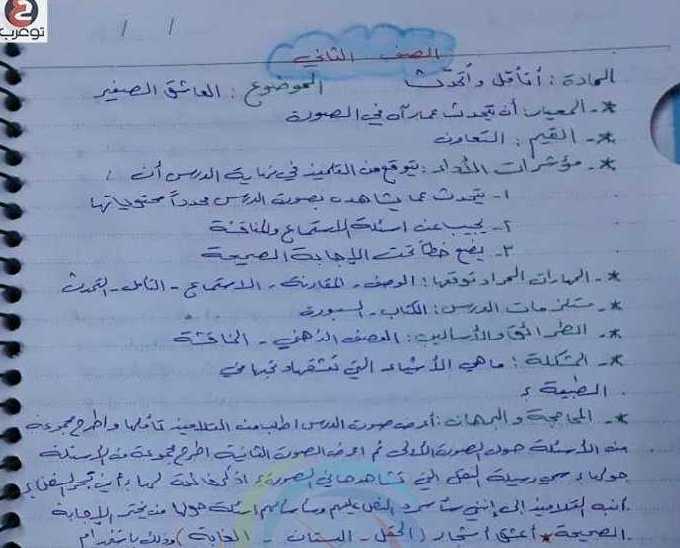 توعرب
/ /
الصف الثاني
المادة: أتأمل وأتحدث الموضوع: العاشق الصغير
*- المعيار: أن يتحدث عما رآه في الصورة
*- القيم: التعاون
*- مؤشرات الأداء: يتوقع من التلميذ في نهاية الدرس أن:
١- يتحدث عما يشاهده بصورة الدرس محدداً محتوياتها
٢- يجيب عن اسئلة الاستماع والمناقشة
٣- يضع خطاً تحت الإجابة الصحيحة
*- المهارات المراد توقعها: الوصف - المقارنة - الاستماع - التأمل - التحدث
*- مستلزمات الدرس: الكتاب - السبورة
*- الطرائق والأساليب: العصف الذهني - المناقشة
*- المشكلة: ما هي الأشياء التي تشاهدينها في
الطبيعة؟
*- المحاججة والبرهان: أعرض صورة الدرس اطلب من التلاميذ تأملها واطرح مجموعة
من الأسئلة حول الصورة الأولى ثم اعرض الصورة الثانية اطرح مجموعة من الأسئلة
حولها؟ سمي وسيلة النقل التي تشاهدها في الصورة؟ اذكر فائدة لها؟ بأي تجر السفن؟
أنبه التلاميذ إلى إنني سأسرد النص عليهم وسأسألهم أسئلة حولها من يختر الإجابة
الصحيحة * أعشق أشجار (الحقل - البستان - الغابة) وذلك باستخدام